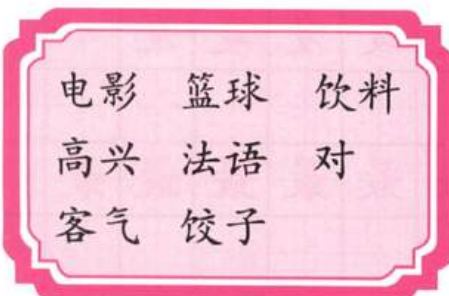 电影 篮球 饮料
高兴 法语 对
客气 饺子